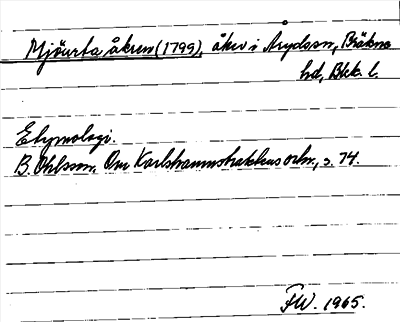 Mjöurta åkren (1799), åker i Åryds sn, Bräkne
hd, Blek. l.
Etymologi.
B. Ohlsson, Om Karlshamnstrakten s. 74.
FW. 1965.